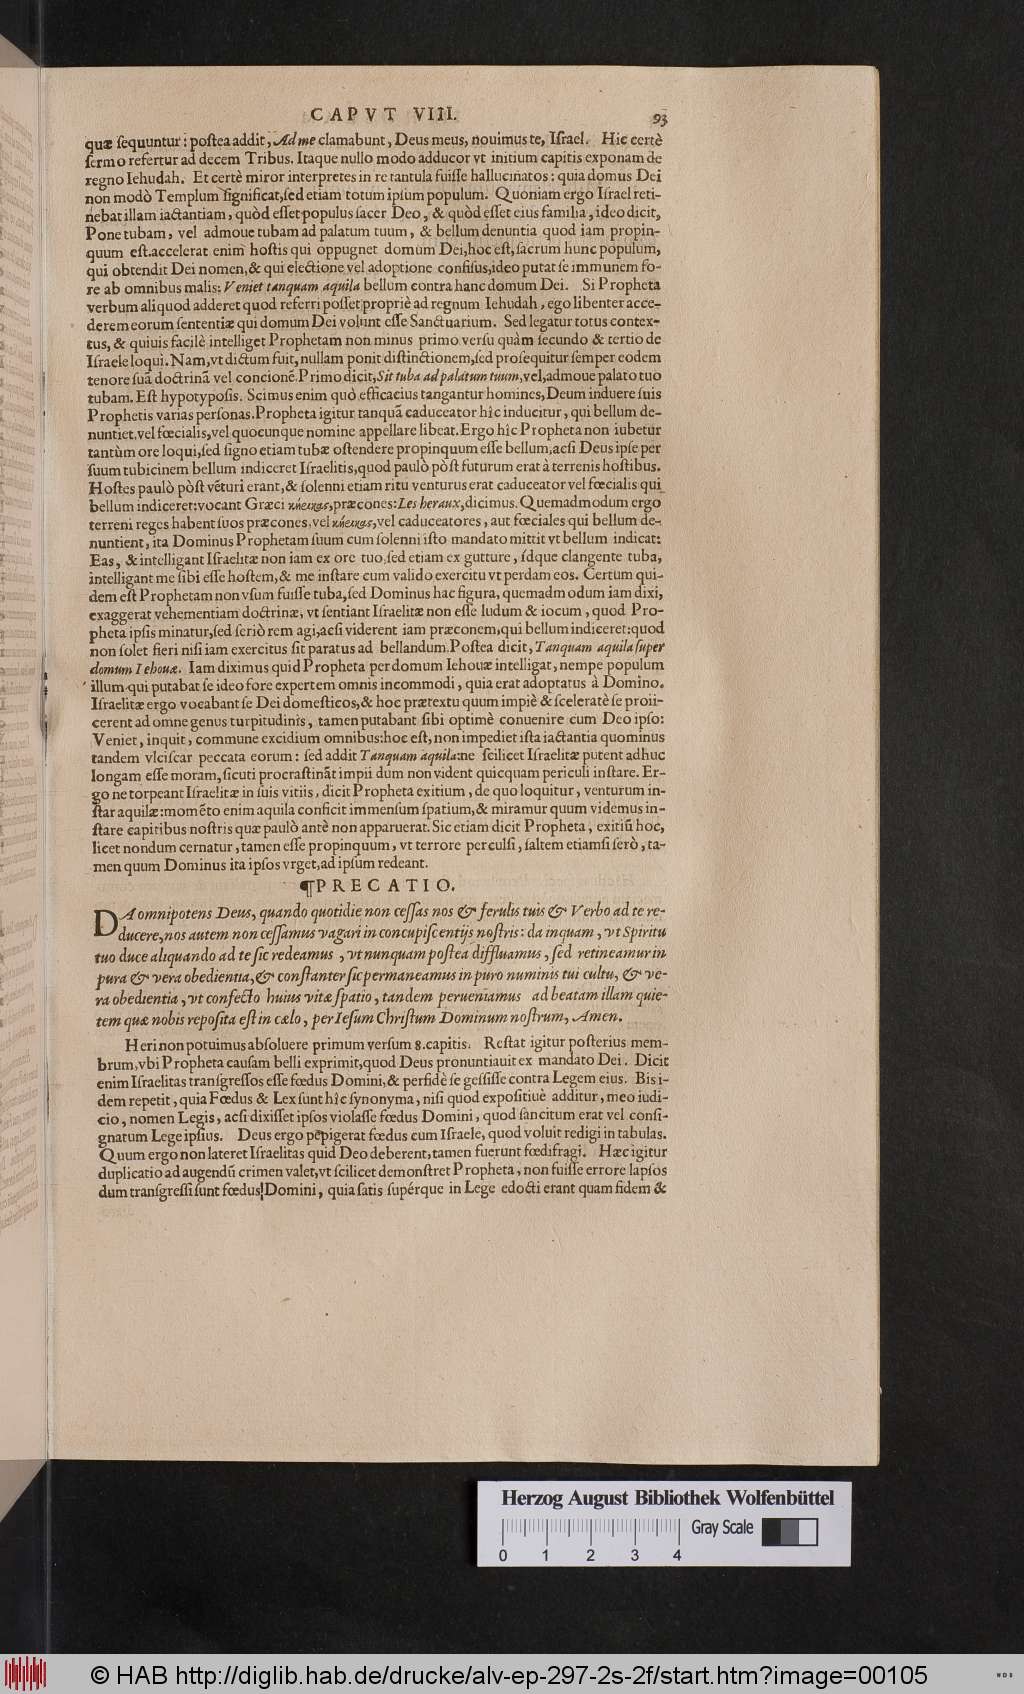 CAPVT VIII. 93
quæ ſequuntur: poſtea addit, Ad me clamabunt, Deus meus, nouimus te, Iſrael. Hic certè
ſermo refertur ad decem Tribus. Itaque nullo modo adducor vt initium capitis exponam de
regno Iehudah. Et certè miror interpretes in re tantula fuiſſe hallucinatos: quia domus Dei
non modò Templum ſignificat, ſed etiam totum ipſum populum. Quoniam ergo Iſrael reti-
nebat illam iactantiam, quòd eſſet populus ſacer Deo, & quòd eſſet eius familia, ideo dicit,
Pone tubam, vel admoue tubam ad palatum tuum, & bellum denuntia quod iam propin-
quum eſt. accelerat enim hoſtis qui oppugnet domum Dei, hoc eſt, ſacrum hunc populum,
qui obtendit Dei nomen, & qui electione vel adoptione confiſus, ideo putat ſe immunem fo-
re ab omnibus malis: Veniet tanquam aquila bellum contra hanc domum Dei. Si Propheta
verbum aliquod adderet quod referri poſſet propriè ad regnum Iehudah, ego libenter acce-
derem eorum ſententiæ qui domum Dei volunt eſſe Sanctuarium. Sed legatur totus contex-
tus, & quiuis facilè intelliget Prophetam non minus primo verſu quàm ſecundo & tertio de
Iſraele loqui. Nam, vt dictum fuit, nullam ponit diſtinctionem, ſed proſequitur ſemper eodem
tenore ſuã doctrinã vel concionẽ. Primo dicit, Sit tuba ad palatum tuum, vel, admoue palato tuo
tubam. Eſt hypotypoſis. Scimus enim quò efficacius tangantur homines, Deum induere ſuis
Prophetis varias perſonas. Propheta igitur tanquã caduceator hîc inducitur, qui bellum de-
nuntiet, vel fœcialis, vel quocunque nomine appellare libeat. Ergo hîc Propheta non iubetur
tantùm ore loqui, ſed ſigno etiam tubæ oſtendere propinquum eſſe bellum, acſi Deus ipſe per
ſuum tubicinem bellum indiceret Iſraelitis, quod paulò pòſt futurum erat à terrenis hoſtibus.
Hoſtes paulò pòſt vẽturi erant, & ſolenni etiam ritu venturus erat caduceator vel fœcialis qui
bellum indiceret: vocant Græci κήρυκας, præcones: Les heraux, dicimus. Quemadmodum ergo
terreni reges habent ſuos præcones, vel κήρυκας, vel caduceatores, aut fœciales qui bellum de-
nuntient, ita Dominus Prophetam ſuum cum ſolenni iſto mandato mittit vt bellum indicat:
Eas, & intelligant Iſraelitæ non iam ex ore tuo, ſed etiam ex gutture, ídque clangente tuba,
intelligant me ſibi eſſe hoſtem, & me inſtare cum valido exercitu vt perdam eos. Certum qui-
dem eſt Prophetam non vſum fuiſſe tuba, ſed Dominus hac figura, quemadmodum iam dixi,
exaggerat vehementiam doctrinæ, vt ſentiant Iſraelitæ non eſſe ludum & iocum, quod Pro-
pheta ipſis minatur, ſed ſeriò rem agi, acſi viderent iam præconem, qui bellum indiceret: quod
non ſolet fieri niſi iam exercitus ſit paratus ad bellandum. Poſtea dicit, Tanquam aquila ſuper
domum Iehouæ. Iam diximus quid Propheta per domum Iehouæ intelligat, nempe populum
illum qui putabat ſe ideo fore expertem omnis incommodi, quia erat adoptatus à Domino.
Iſraelitæ ergo vocabant ſe Dei domeſticos, & hoc prætextu quum impiè & ſceleratè ſe proii-
cerent ad omne genus turpitudinis, tamen putabant ſibi optimè conuenire cum Deo ipſo:
Veniet, inquit, commune excidium omnibus: hoc eſt, non impediet iſta iactantia quominus
tandem vlciſcar peccata eorum: ſed addit Tanquam aquila: ne ſcilicet Iſraelitæ putent adhuc
longam eſſe moram, ſicuti procraſtinãt impii dum non vident quicquam periculi inſtare. Er-
go ne torpeant Iſraelitæ in ſuis vitiis, dicit Propheta exitium, de quo loquitur, venturum in-
ſtar aquilæ: momẽto enim aquila conficit immenſum ſpatium, & miramur quum videmus in-
ſtare capitibus noſtris quæ paulò antè non apparuerat. Sic etiam dicit Propheta, exitiũ hoc,
licet nondum cernatur, tamen eſſe propinquum, vt terrore perculſi, ſaltem etiamſi ſerò, ta-
men quum Dominus ita ipſos vrget, ad ipſum redeant.
¶PRECATIO.
DA omnipotens Deus, quando quotidie non ceſſas nos & ferulis tuis & Verbo ad te re-
ducere, nos autem non ceſſamus vagari in concupiſcentijs noſtris: da inquam, vt Spiritu
tuo duce aliquando ad te ſic redeamus, vt nunquam poſtea diffluamus, ſed retineamur in
pura & vera obedientia, & conſtanter ſic permaneamus in puro numinis tui cultu, & ve-
ra obedientia, vt confecto huius vitæ ſpatio, tandem perueniamus ad beatam illam quie-
tem quæ nobis repoſita eſt in cælo, per Ieſum Chriſtum Dominum noſtrum, Amen.
Heri non potuimus abſoluere primum verſum 8. capitis. Reſtat igitur poſterius mem-
brum, vbi Propheta cauſam belli exprimit, quod Deus pronuntiauit ex mandato Dei. Dicit
enim Iſraelitas tranſgreſſos eſſe fœdus Domini, & perfidè ſe geſſiſſe contra Legem eius. Bis i-
dem repetit, quia Fœdus & Lex ſunt hîc ſynonyma, niſi quod expoſitiuè additur, meo iudi-
cio, nomen Legis, acſi dixiſſet ipſos violaſſe fœdus Domini, quod ſancitum erat vel conſi-
gnatum Lege ipſius. Deus ergo pepigerat fœdus cum Iſraele, quod voluit redigi in tabulas.
Quum ergo non lateret Iſraelitas quid Deo deberent, tamen fuerunt fœdifragi. Hæc igitur
duplicatio ad augendũ crimen valet, vt ſcilicet demonſtret Propheta, non fuiſſe errore lapſos
dum tranſgreſſi ſunt fœdus Domini, quia ſatis ſupérque in Lege edocti erant quam fidem &
Herzog August Bibliothek Wolfenbüttel
Gray Scale
0 1 2 3 4
© HAB http://diglib.hab.de/drucke/alv-ep-297-2s-2f/start.htm?image=00105